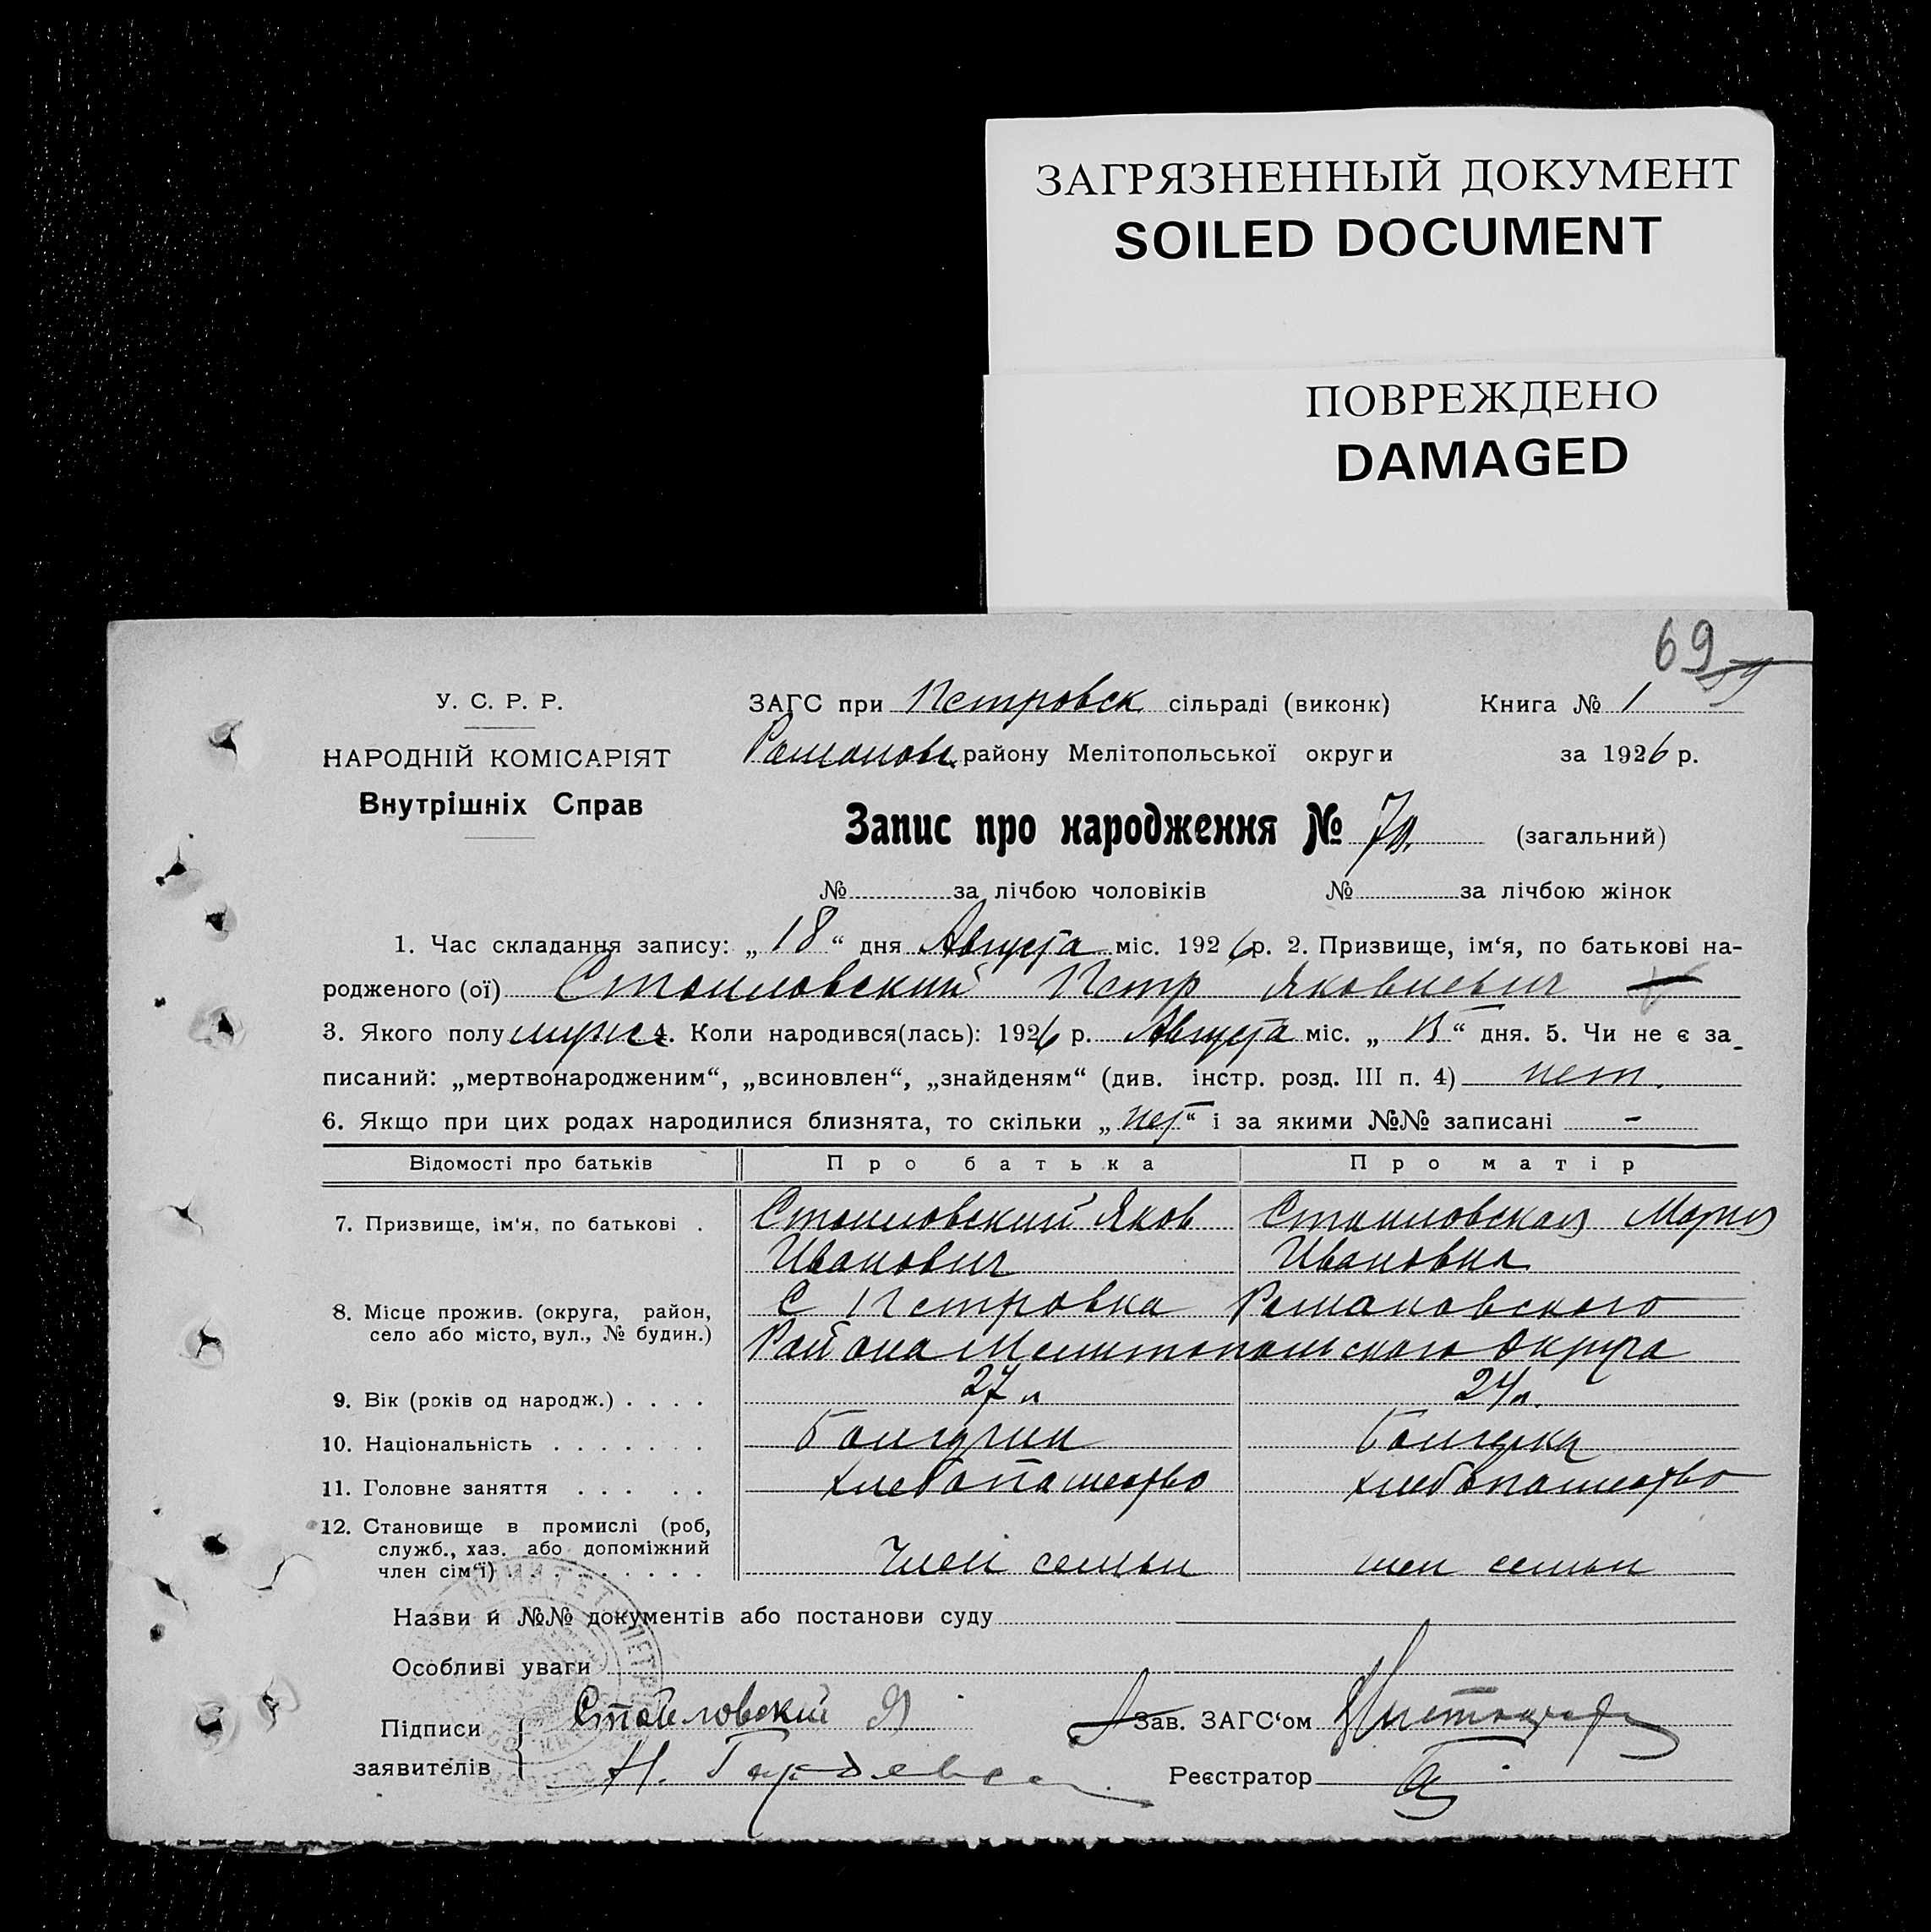 ЗАГРЯЗНЕННЫЙ ДОКУМЕНТ
SOILED DOCUMENT
ПОВРЕЖДЕНО
DAMAGED
69
У. С. Р. Р.
ЗАГС при Петровск сільраді (виконк) Книга № 1
НАРОДНІЙ КОМІСАРІЯТ
Романов. району Мелітопольської округи за 1926 р.
Внутрішніх Справ
Запис про народження № 70. (загальний)
№ за лічбою чоловіків № за лічбою жінок
1. Час складання запису: „18“ дня Августа міс. 1926 р. 2. Призвище, ім‘я, по батькові на-
родженого (ої) Стоиловский Петр Яковлевич
3. Якого полу мужс 4. Коли народився(лась): 1926 р. Августа міс. „15“ дня. 5. Чи не є за_
писаний: „мертвонародженим“, „всиновлен“, „знайденям“ (див. інстр. розд. III п. 4) нет.
6. Якщо при цих родах народилися близнята, то скільки „нет“ і за якими №№ записані -
Відомості про батьків Про батька Про матір
7. Призвище, ім‘я, по батькові . Стоиловский Яков Стоиловская Мария
Иванович Ивановна
8. Місце прожив. (округа, район, С Петровка Романовского
село або місто, вул., № будин.) Района Мелитопольского округа
9. Вік (років од народж.) . . . . 27 л 24 л.
10. Національність . . . . . . . Болгарин Болгарка
11. Головне заняття . . . . . хлебопашество хлебопашество
12. Становище в промислі (роб,
служб., хаз. або допоміжний
член сім‘ї) . . . . . . . . . Член семьи член семьи
Назви й №№ документів або постанови суду
Особливі уваги
Підписи Стоиловский Я Зав. ЗАГС‘ом
заявителів Н. Реєстратор